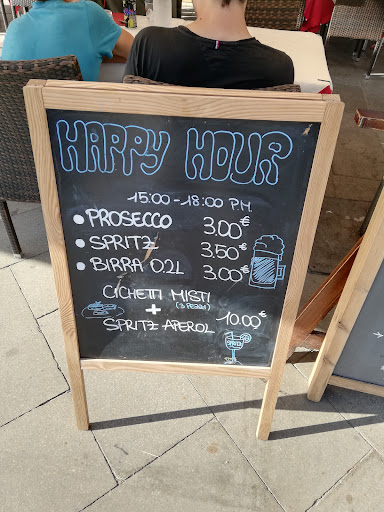 HAPPY HOUR
15:00 - 18:00 PM
PROSECCO 3.00€
SPRITZ 3.50€
BIRRA 0.2L 3.00€
CICHETTI MISTI
(3 PEZZI)
+ 10.00€
SPRITZ APEROL